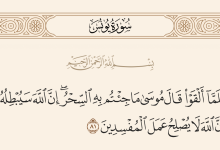 سُورَةُ يُونُسَ
بِسْمِ ٱللَّهِ ٱلرَّحْمَٰنِ ٱلرَّحِيمِ
لَمَّآ أَلْقَوْا۟ قَالَ مُوسَىٰ مَا جِئْتُم بِهِ ٱلسِّحْرُ ۖ إِنَّ ٱللَّهَ سَيُبْطِلُهُ
نَّ ٱللَّهَ لَا يُصْلِحُ عَمَلَ ٱلْمُفْسِدِينَ ٨١